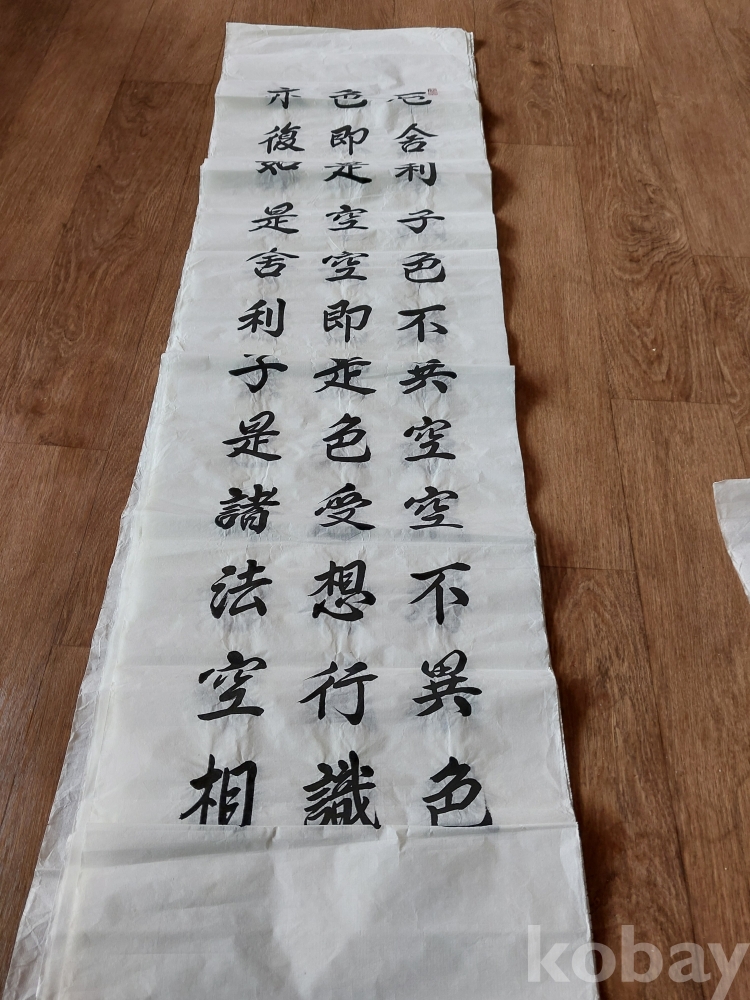 厄舍利子色不異空空不異色
色即是空空即是色受想行識
亦復如是舍利子是諸法空相
kobay